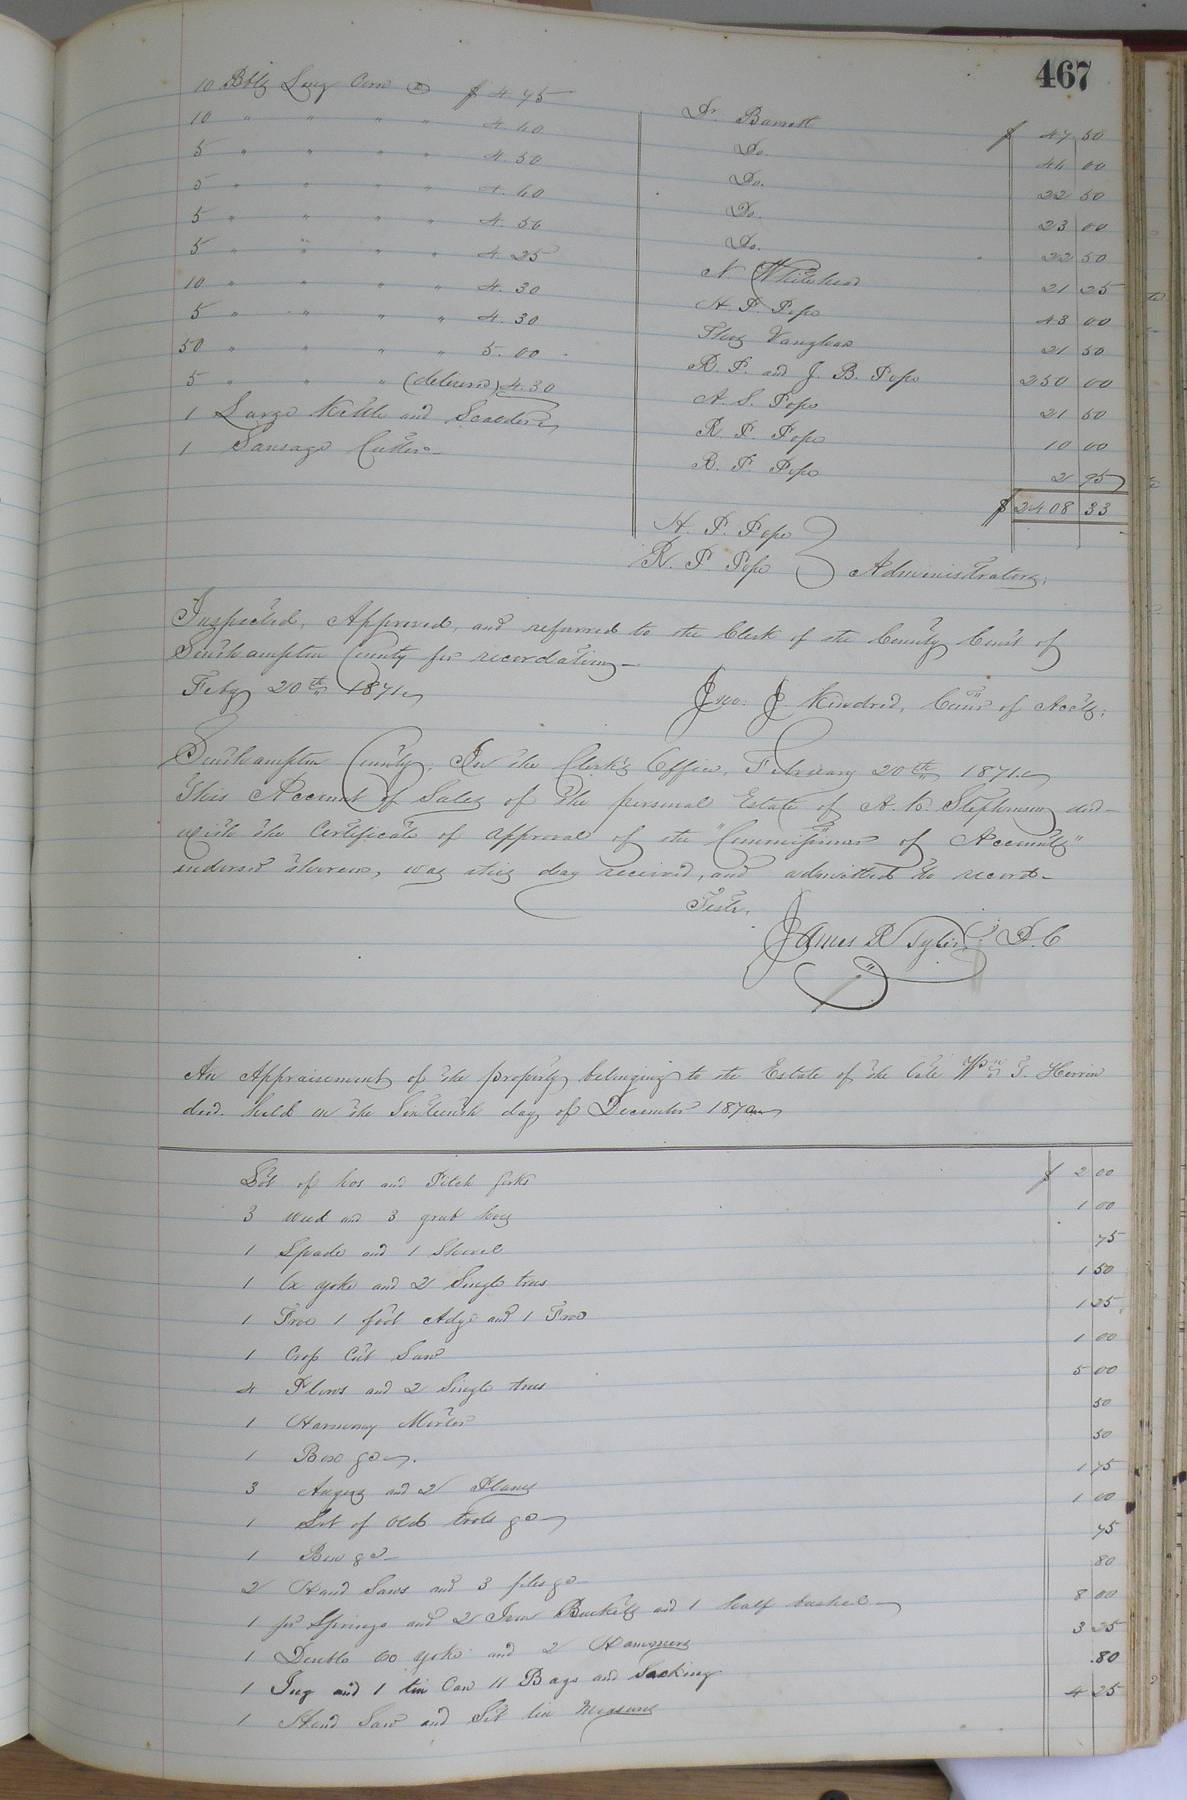 467
10 Bbls Long Corn @ $4.75 Dr. Barrett $ 47 50
10 " " " " 4.40 Do. 44 00
5 " " " " 4.50 Do. 22 50
5 " " " " 4.60 Do. 23 00
5 " " " " 4.50 Do. 22 50
5 " " " " 4.25 N. Whitehead 21 25
10 " " " " 4.30 H. P. Pope 43 00
5 " " " " 4.30 Thos Vaughan 21 50
50 " " " " 5.00 R. P. and J. B. Pope 250 00
5 " " " (delivered) 4.30 H. S. Pope 21 50
1 Large Kettle and R. P. Pope 10 00
1 Sausage Cutter R. P. Pope 2 95
$ 2408 33
H. P. Pope
R. P. Pope } Administrators.
Inspected, Approved, and referred to the Clerk of the County Court of
Southampton County for recordation
Feby 20th 1871.
Jno. J. Kindred, Comr of Accts.
Southampton County, In the Clerk's Office, February 20th 1871.
This Account of Sales of the personal Estate of A. K. Stephenson decd
with the Certificate of approval of the "Commissioner of Accounts"
endorsed thereon, was this day received, and admitted to record
Teste,
James R Tyler D.C
An Appraisement of the property belonging to the Estate of the late Wm T. Herrin
decd. held on the Sixteenth day of December 1870
Lot of hoes and Pitch forks $ 2 00
3 weed and 3 grub hoes 1 00
1 Spade and 1 Shovel 75
1 Ox yoke and 2 Single trees 1 50
1 Froe 1 foot Adze and 1 Froe 1 25
1 Crop Cut Saw 1 00
4 Plows and 2 Single trees 5 00
1 50
1 Box &c 50
3 Augers and 2 Planes 1 75
1 Lot of Old tools &c 1 00
1 Box &c 75
2 Hand Saws and 3 files &c 80
1 pr Springs and 2 Iron Buckets and 1 half bushel 8 00
1 Double Ox yoke and 2 Hammers 3 25
1 Jug and 1 tin Can 11 Bags and Sacking .80
1 Hand Saw and Set tin Measure 4 25